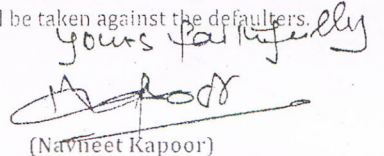 l be taken against the defaulters.
yours faithfully
(Navneet Kapoor)